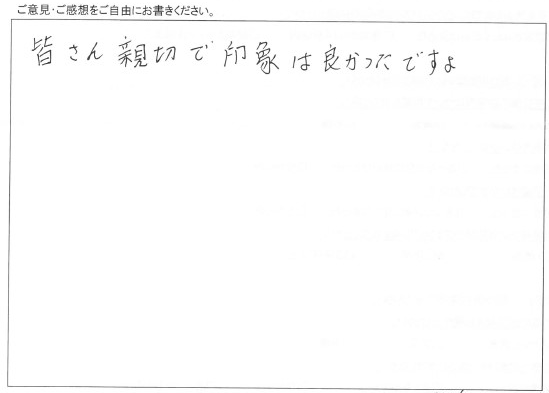 ご意見・ご感想をご自由にお書きください。
皆さん親切で印象は良かったですよ